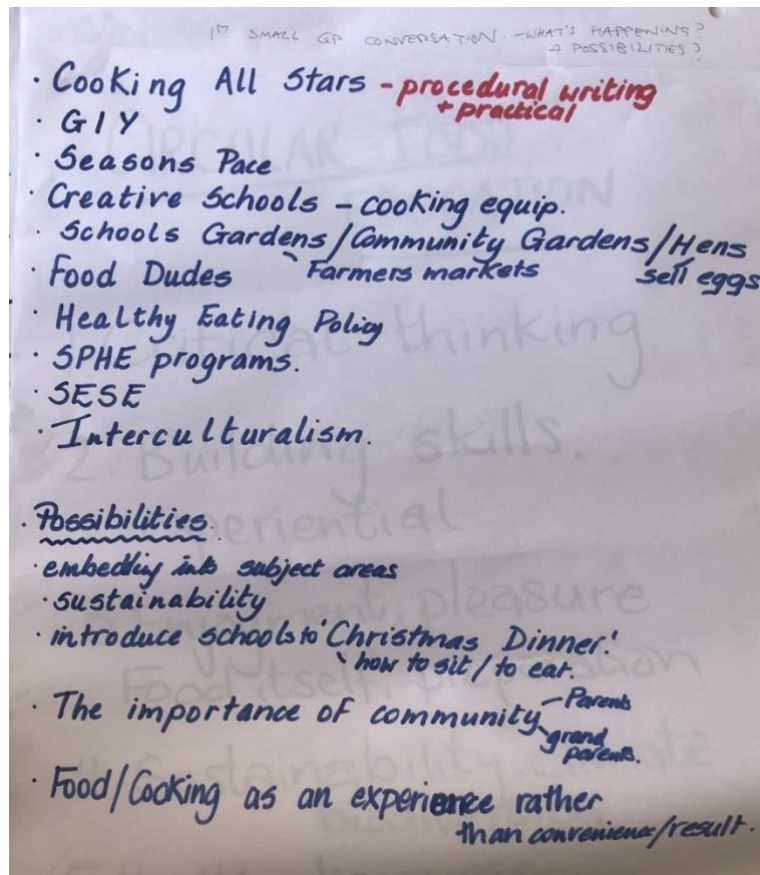 1ST SMALL GP CONVERSATION. - WHAT'S HAPPENING?
+ POSSIBILITIES?
· Cooking All Stars - procedural writing
+ practical
· GIY
· Seasons Pace
· Creative Schools - cooking equip.
· Schools Gardens / Community Gardens / Hens
Farmers markets sell eggs
· Food Dudes
· Healthy Eating Policy
· SPHE programs.
· SESE
· Interculturalism.
· Possibilities.
· embedding into subject areas
· sustainability
· introduce schools to 'Christmas Dinner.'
how to sit / to eat.
· The importance of community - Parents
grand
parents.
· Food/Cooking as an experience rather
than convenience/result.